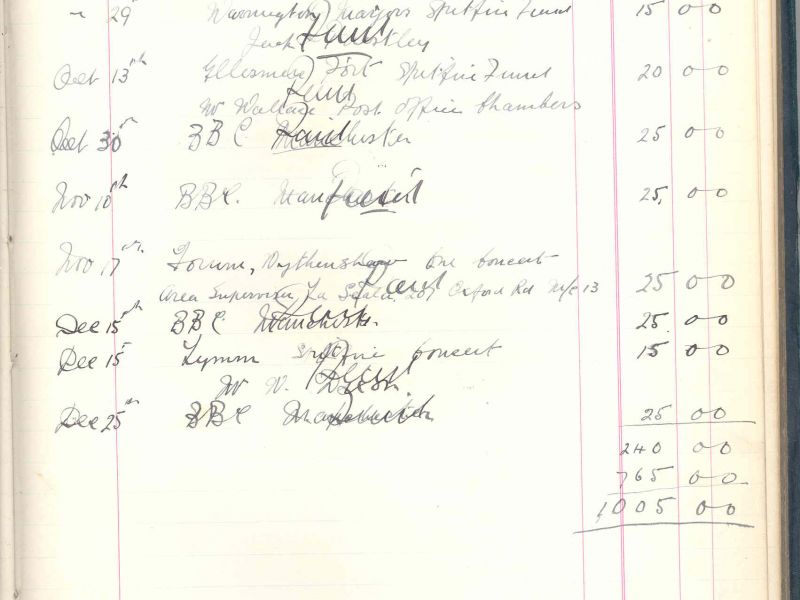 " 29 Warrington Mayors Spitfire Fund 15 00
Jack
Paid
Oct 13th Ellesmere Port Spitfire Fund 20 00
Paid
Mr Wallace Post Office Chambers
Oct 30th BBC Manchester 25 00
Paid
Nov 10th BBC. Manchester 25. 00
Paid
Nov 17th Forum, Wythenshawe concert
Area Supervisor La Scala. Oxford Rd M/c 13 25 00
Paid
Dec 15th BBC Manchester. 25. 00
Dec 15 Lymm Spitfire Concert 15 00
Paid
Mr W.
Dec 25th BBC Manchester 25 00
Paid
240 00
765 00
1,005 00